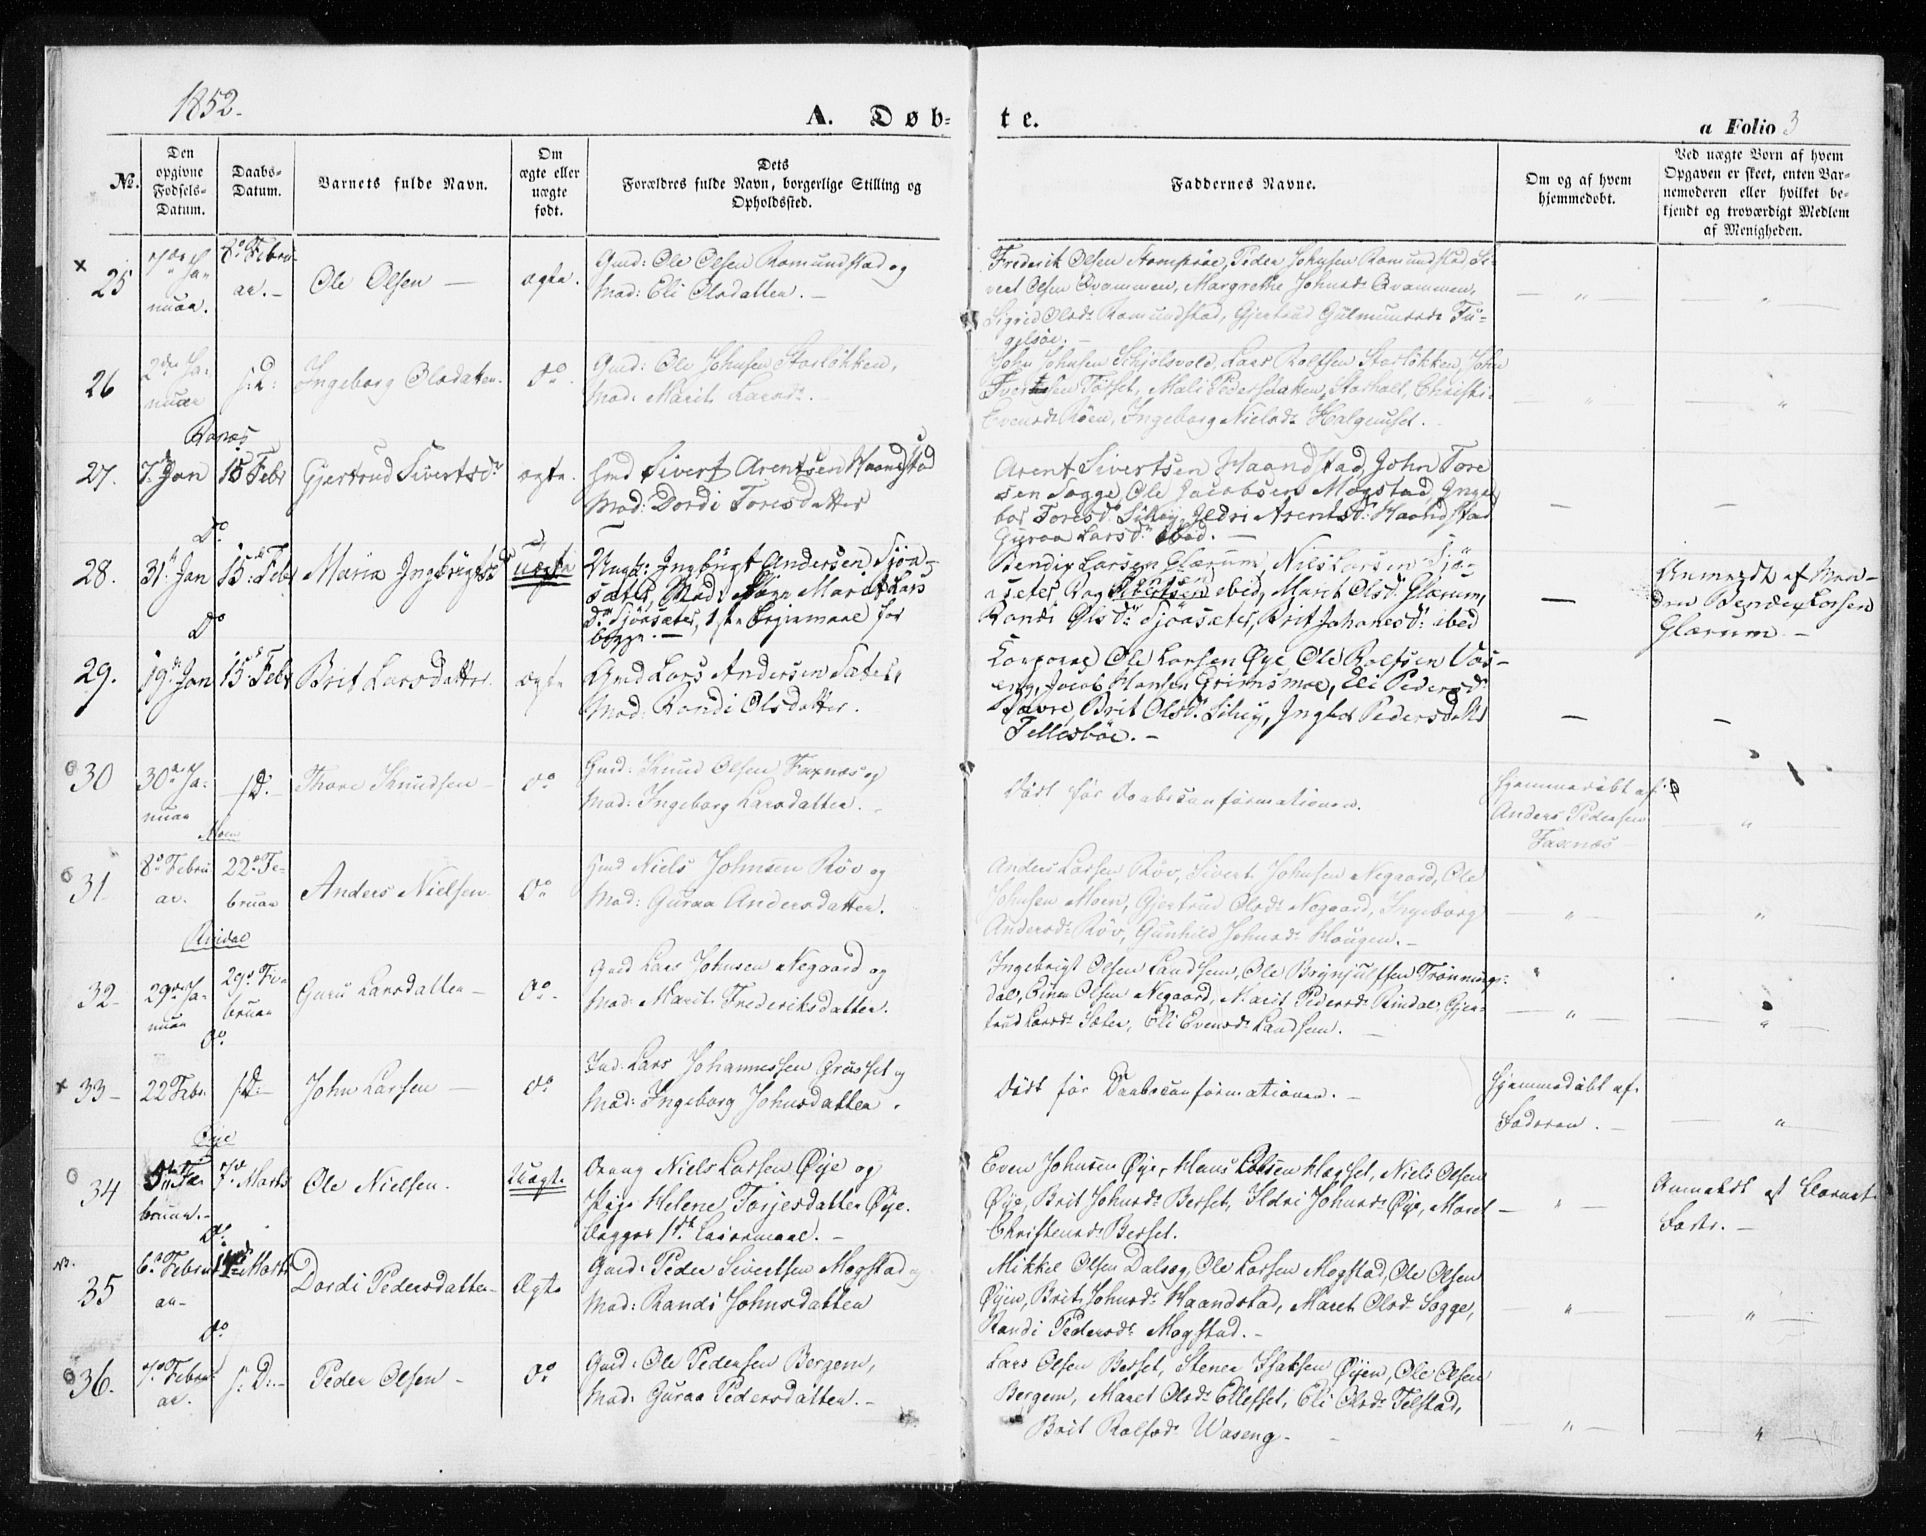 1852.
A. Døb-
te.
a Folio 3
No.
Den opgivne Fødsels-Datum.
Daabs-Datum.
Barnets fulde Navn.
Om ægte eller uægte født.
Dets
Forældres fulde Navn, borgerlige Stilling og Opholdssted.
Faddernes Navne.
Om og af hvem hjemmedøbt.
Ved uægte Børn af hvem
Opgaven er skeet, enten Bar-
nemoderen eller hvilket be-
kjendt og troværdigt Medlem
af Menigheden.
25
Januar.
8de Februar.
Ole Olsen
ægte.
Gmd: Ole Olsen Romundstad og
Mad: Eli Olsdatter.
Frederik Olsen Peder Johnsen Romundstad, Si-
vert Olsen Qvammen, Margrethe Johnsdr Qvammen,
Sigrid Olsdr Romundstad, Gjertrud Fu-
gelsøe.
26
2den Januar
s: D:
Ingeborg Olsdatter.
do.
Gmd: Ole Johnsen Storløkken,
Mad: Marit Larsdr.
John Johnsen Skjølsvold, Lars Rolfsen Storløkken, John
Tøsset, Mali Pedersdatter Christi
Evensdr Røen, Ingeborg Nielsdr Halgenset.
27.
7. Jan
15 Febr
Gjertrud Sivertsdr
ægte.
Gmd Sivert Arentsen Haandstad
Mad: Dordi Toresdatter
Arent Sivertsen Haandstad, John Tore
sen Sogge, Ole Jacobsen Mogstad, Inge
bor Toresdr Sihey, Ildri Arentsdr Haandstad
Guraa Larsdr ibid.
Do
28.
31t Jan
15de Feb
Maria Ingbrigtsdr
uægte
Ungk: Ingbrigt Andersen Sjøa-
sæter, Mad: Pige Marit Lars
Dr Sjøasæter, 1ste Leiermaal for
begge.
Bendix Larsen Glærum, Nils Larsen Sjø-
asæter, ibid, Marit Olsdr Glærum,
Randi Olsdr Sjøasæter, Brit Johanesdr ibid
Anmeldt af Man-
den Bendix Larsen
Glærum.
Do
29.
19de Jan
15de Febr
Brit Larsdatter
ægte
Gmd Lars Andersen Sæter,
Mad: Randi Olsdatter.
Korporal Ole Larsen Øye, Ole Rolfsen Vas-
eng, Jacob Hansen Grimsmoe, Eli Pedersdr
Brit Olsdr Sihey, Ingbor Pedersdatter
Tellesbøe.
30
30te Januar
s: D:
Thore Knudsen
do
Gmd: Knud Olsen Faxnæs og
Mad: Ingeborg Larsdatter.
Dødt før Daabsconfirmationen.
Hjemmedøbt af
Anders Pedersen
Faxnæs
Moen
31
8de Februar.
22de Februar
Anders Nielsen
Do
Gmd Niels Johnsen Røv og
Mad: Guraa Andersdatter.
Anders Larsen Røv, Sivert Johnsen Negaard, Ole
Johnsen Moen, Gjertrud Olsdr Negaard, Ingeborg
Andersdr Røv, Gunhild Johnsdr Haugen.
Rindal
32
29de Januar
29de Februar
Guru Larsdatter
do.
Gmd Lars Johnsen Negaard og
Mad: Marit Frederiksdatter.
Ingebrigt Olsen Landsem, Ole Brynjulfsen Trønnings-
dal, Einer Olsen Negaard, Marit Pedersdr Rindal, Gjer-
trud Larsdr Sæter, Eli Evensdr Landsem.
do
33
22 Febr.
s: D:
John Larsen
do
Ind: Lars Johannessen Grøsset og
Mad: Ingeborg Johnsdatter.
Dødt før Daabsconfirmationen.
Hjemmedøbt af
Faderen.
Øye
34
Februar.
7de Marts
Ole Nielsen.
Uægte
Dreng Niels Larsen Øye og
Pige Helene Torjesdatter Øye.
Begges 1ste Leiermaal.
Even Johnsen Øye, Hans Olsen Hægset, Niels Olsen
Øye, Brit Johnsdr Besset, Ildri Johnsdr Øye, Maret
Christensdr Besset.
Anmeldt af Barnets
Fader.
do
35
6te Februar
14de Marts
Dordi Pedersdatter
Ægte
Gmd: Peder Sivertsen Mogstad og
Mad: Randi Johnsdatter
Mikkel Olsen Dalsøg, Ole Larsen Mogstad, Ole Olsen
Øyen, Brit Johnsdr Haandstad, Maret Olsdr Sogge,
Randi Pedersdr Mogstad.
do
36.
7de Februar.
s: D:
Peder Olsen
do
Gmd: Ole Pedersen Bergem,
Mad: Guraa Pedersdatter.
Lars Olsen Besset, Stener Isaksen Øyen, Ole Olsen
Bergem, Maret Olsdr Ellefset, Eli Olsdr Telstad,
Brit Rolfsdr Waseng